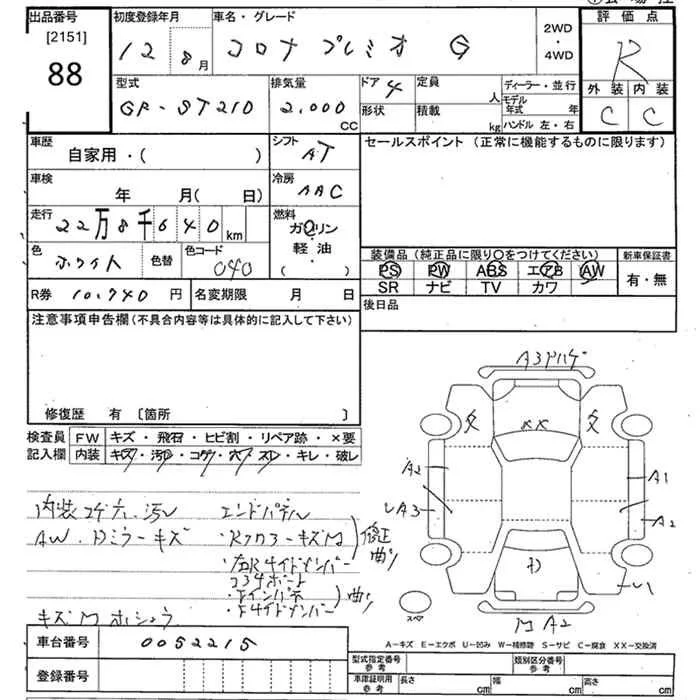 出品番号 [2151] 88
初度登録年月 12 8月
車名・グレード コロナ プレミオ G
2WD・4WD
評価点 R
外装 内装
C C
型式 GF-ST210
排気量 2,000 CC
ドア 4
形状
定員 人
積載 kg
ディーラー・並行
モデル年式 年
ハンドル 左・右
車歴 自家用・( )
シフト AT
セールスポイント (正常に機能するものに限ります)
車検 年 月( 日)
冷房 AAC
走行 22万8千640km
燃料 ガソリン 軽油 ( )
色 ホワイト 色替 色コード 040
装備品(純正品に限り〇をつけてください)
PS PW ABS エアB AW
SR ナビ TV カワ
新車保証書 有・無
R券 10,740円
名変期限 月 日
後日品
注意事項申告欄(不具合内容等は具体的に記入して下さい)
修復歴 有 〔箇所 〕
検査員記入欄
FW キズ・飛石・ヒビ割・リペア跡・×要
内装 キズ・汚れ・コゲ・穴・スレ・キレ・破レ
内装コゲ穴、汚レ
AW、ドミラーキズ
エンドパネル
・Rフロアーキズ
修正
曲り
曲り
A3
××
A2
A3
A1
A2
U1
A2
スペア
A-キズ E-エクボ U-凹み W-補修跡 S-サビ C-腐食 XX-交換済
車台番号 0052215
登録番号
型式指定番号 参考
類別区分番号 参考
車庫証明用 参考 長さ cm 幅 cm 高さ cm